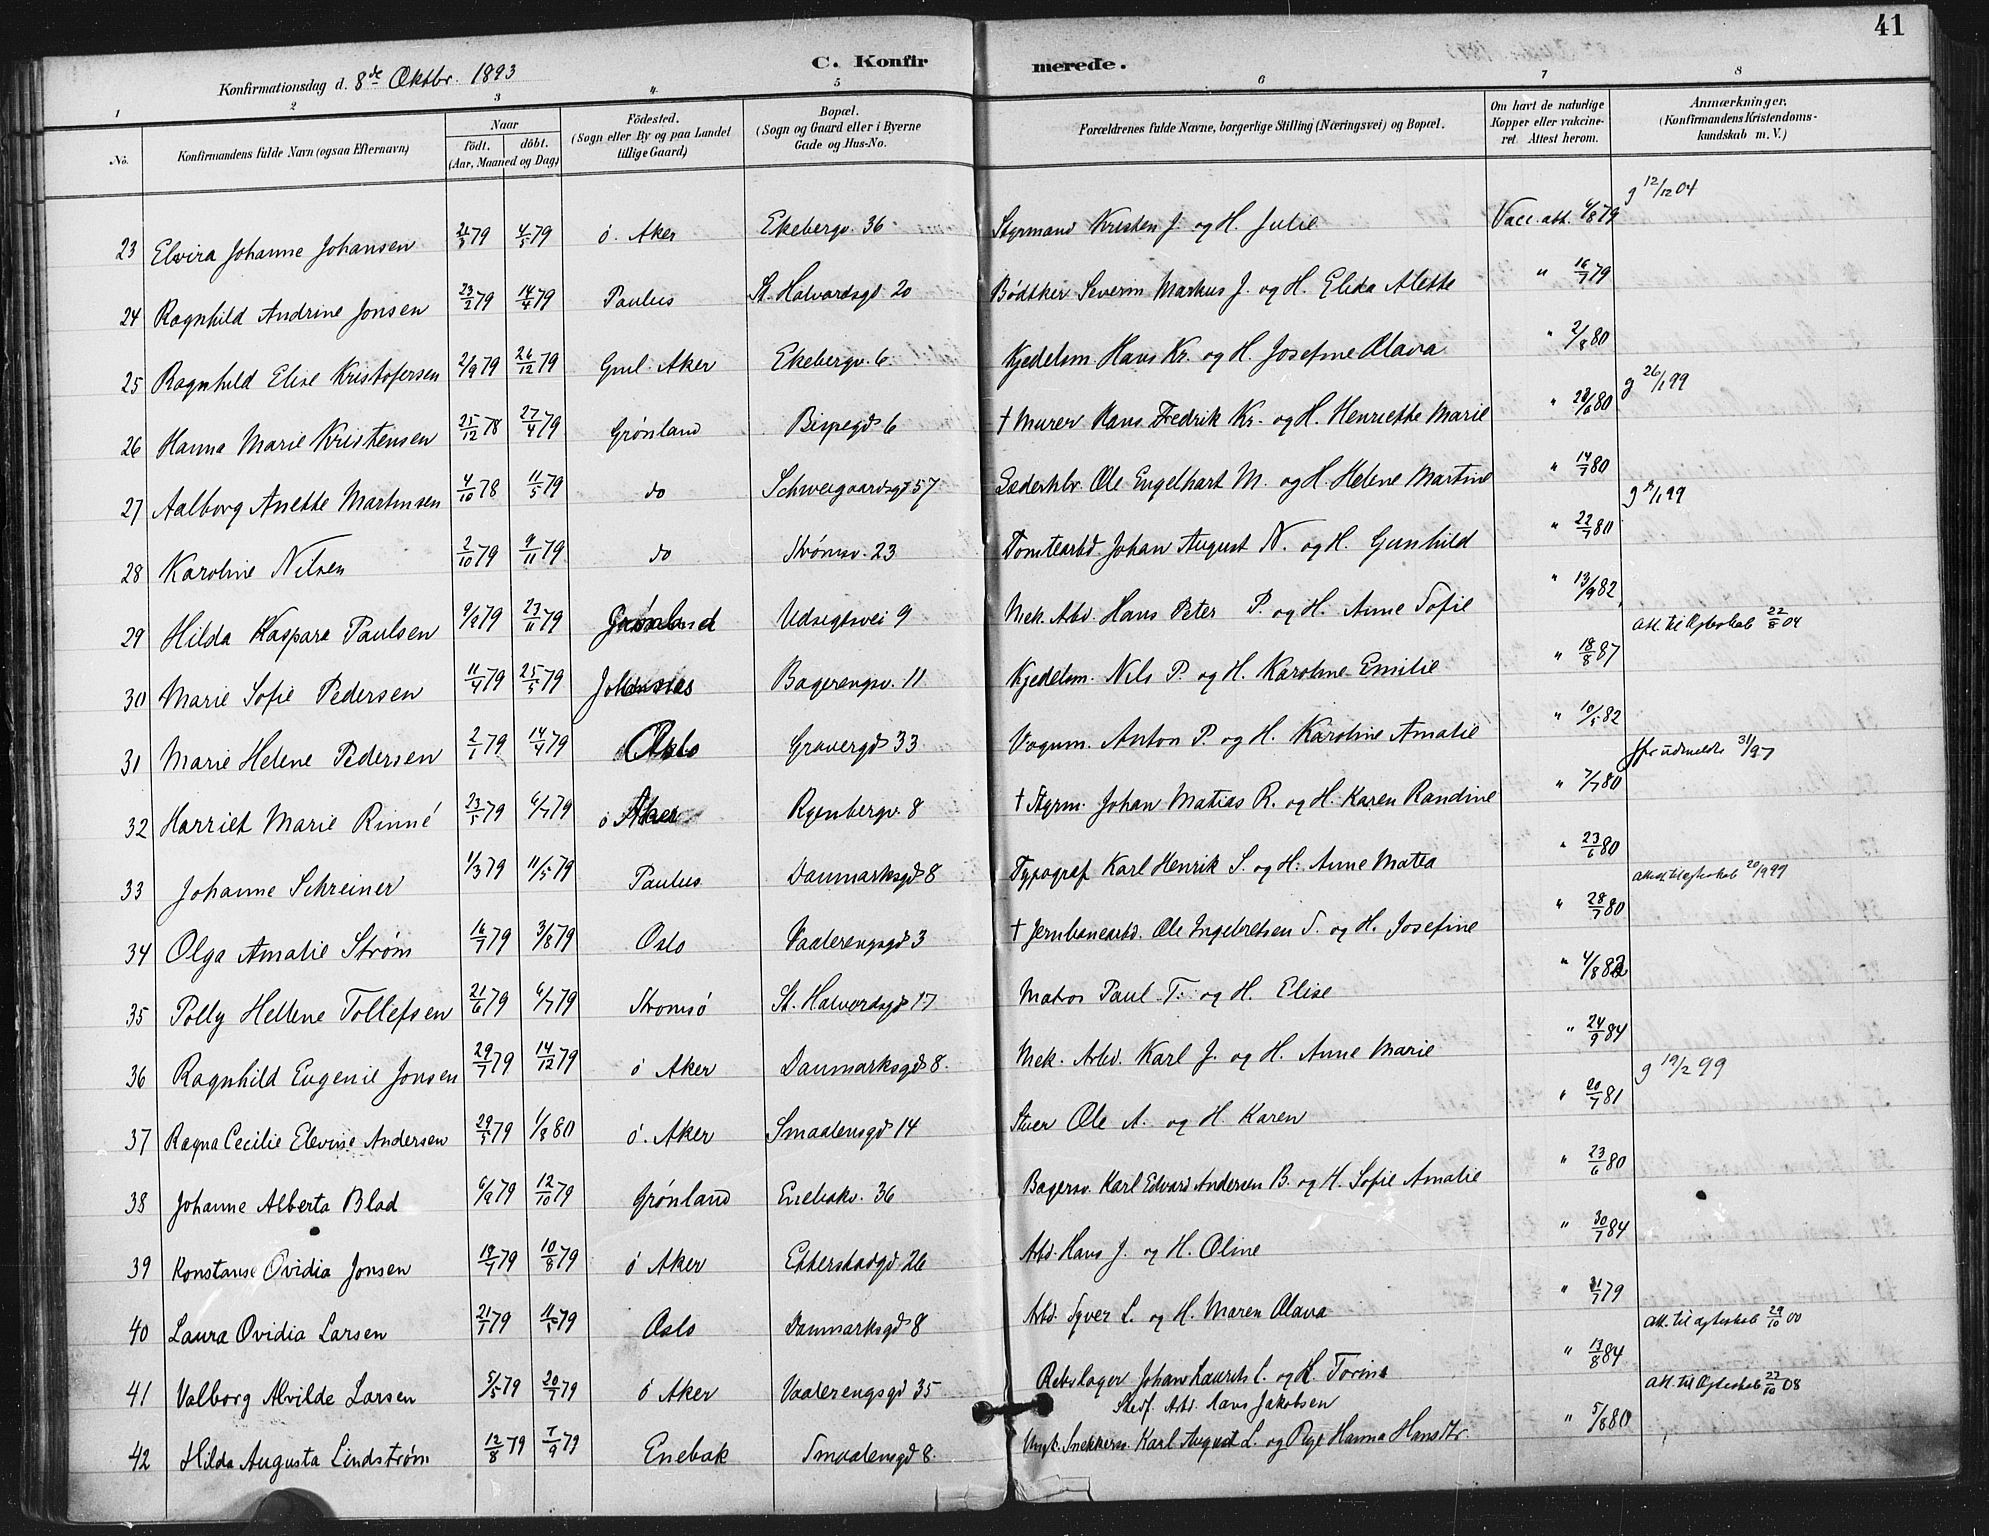 41
C. Konfirmerede.
Konfirmationsdag d. 8de Oktbr. 1893
1 2 3 4 5 6 7 8
No. Konfirmandens fulde Navn (ogsaa Efternavn) Naar født. døbt. (Aar, Maaned og Dag) Fødested. (Sogn eller By og paa Landet tillige Gaard) Bopæl. (Sogn og Gaard eller i Byerne Gade og Hus-No. Forældrenes fulde Navne, borgerlige Stilling (Næringsvei) og Bopæl. Om havt de naturlige Kopper eller vakcineret. Attest herom. Anmærkninger. (Konfirmandens Kristendomskundskab m. V.)
23 Elvira Johanne Johansen 4/5 79 ö. Aker Ekebergv. 36 Styrmand Kristen J. og H. Julie Vacc. att. 4/8 79 g 12/12 04
24 Ragnhild Andrine Jonsen 23/2 79 14/4 79 Paulus St. Halvardsgd 20 Bödtker Severin Markus J. og H. Elida Alette " 16/7 79
25 Ragnhild Elise Kristofersen 2/9 79 26/12 79 Gml. Aker Ekebergv. 6 Kjedelsm. Hans Kr. og H. Josefine Olava " 2/8 80
26 Hanna Marie Kristensen 25/12 78 27/4 79 Grønland Bispegd 6 † Murer Hans Fredrik Kr. og H. Henriette Marie " 28/6 80 g 26/1 99
27 Aalborg Anette Martinsen 4/10 78 11/5 79 do Schweigaardsgd 57 Læderhlr. Ole Engelhart M. og H. Helene Martine " 14/7 80
28 Karoline Nilsen 2/10 79 9/11 79 do Strømsv. 23 Tomtearbd. Johan August N. og H. Gunhild " 22/7 80 g /1 99
29 Hilda Kaspara Paulsen 9/9 79 23/11 79 Grønland Udsigtsvei 9 Mek. Arbd. Hans Peter P. og H. Anne Sofie " 13/9 82
30 Marie Sofie Pedersen 11/4 79 25/5 79 Johannes Bagerengv. 11 Kjedelsm. Nils P. og H. Karoline Emilie " 18/8 87 att. til Ægteskab 22/8 04
31 Marie Helene Pedersen 2/1 79 14/4 79 Oslo Gravergd 33 Vognm. Anton P. og H. Karoline Amalie " 10/5 82
32 Harriet Marie Rinné 23/5 79 6/7 79 ö Aker Ryenbergv. 8 † Styrm. Johan Matias R. og H. Karen Randine " 7/7 80 udmeldt 31/1 97
33 Johanne Schreiner 1/3 79 11/5 79 Paulus Danmarksgd 8 Typograf Karl Henrik S. og H. Anne Matea " 23/6 80
34 Olga Amalie Strøm 16/7 79 3/8 79 Oslo Vaalerengsgd 3 † Jernbanearbd. Ole Ingebretsen S. og H. Josefine " 28/7 80 att. til ægteskab 20/9 99
35 Polly Hellene Tollefsen 21/6 79 6/7 79 Stromsö St. Halvordsgd 17 Matros Paul T. og H. Elise " 4/8 82
36 Ragnhild Eugenie Jonsen 29/7 79 14/12 79 ö Aker Danmarksgd 8. Mek. Arbd. Karl J. og H. Anne Marie " 24/9 84
37 Ragna Cecilie Elevine Andersen 29/5 79 1/8 80 ö. Aker Smaalensgd 14 Stuer Ole A. og H. Karen " 20/7 81 g 19/2 99
38 Johanne Alberta Blad 6/9 79 12/10 79 Grönland Enebakv. 36 Bagersv. Karl Edvard Andersen B. og H. Sofie Amalie " 23/6 80
39 Konstanse Ovidia Jonsen 19/7 79 10/8 79 ö Aker Etterstadgd 26 Arbd. Hans J. og H. Oline " 30/7 84
40 Laura Ovidia Larsen 21/1 79 11/5 79 Oslo Danmarksgd 8 Arbd. Syver L. og H. Maren Olava " 31/7 79
41 Valborg Alvilde Larsen 5/5 79 20/7 79 ö Aker Vaalerengsgd 35 Rebslager Johan Laurits L. og H. Torine " 13/8 84 att. til ægteskab 29/10 00
42 Hilda Augusta Lindstrøm 12/8 79 7/9 79 Enebak Smaalensgd 8. Stedf. Arbd. Hans Jakobsen
Ungk. Snekkersv. Karl August L. og Pige Hanna Hansdtr. " 5/8 80 att. til Ægteskab 27/10 08